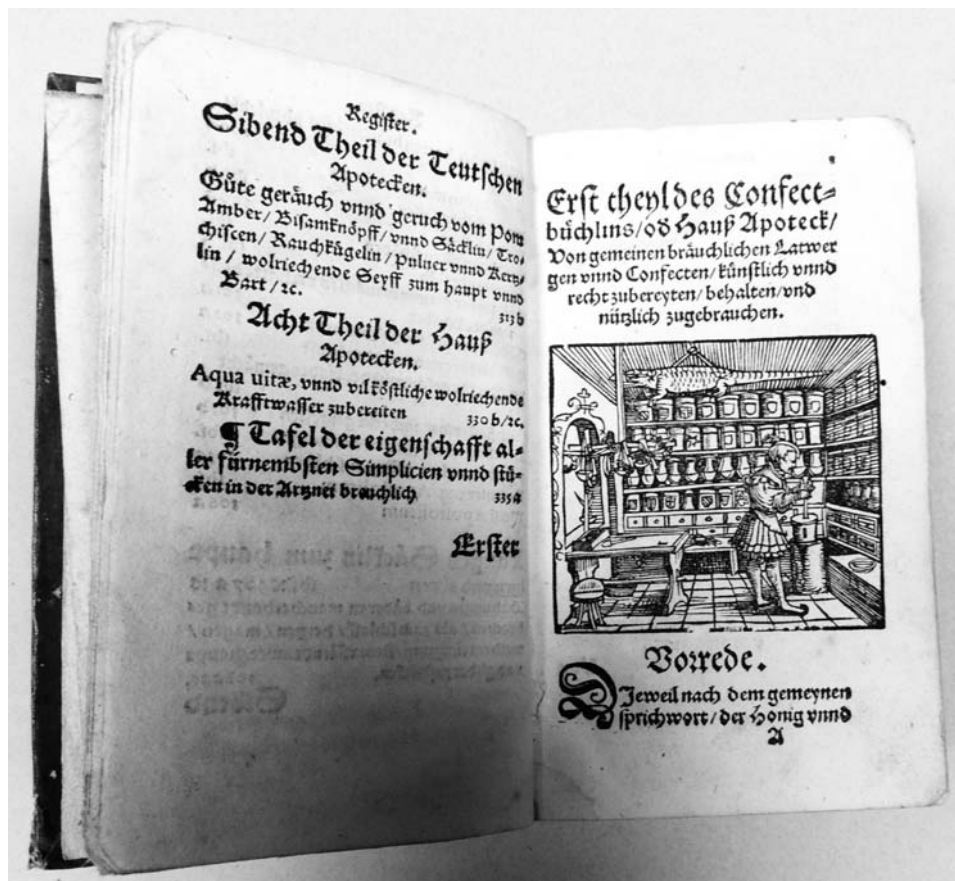 Register.
Sibend Theil der Teutschen
Apotecken.
Gůte geräuch vnnd geruch vom Pom
Amber / Bisamknöpff / vnnd Säcklin / Tro-
chiscen / Rauchkügelin / Puluer vnnd Kertz-
lin / wolriechende Seyff zum haupt vnnd
Bart / ꝛc. 313 b
Acht Theil der Hauß
Apotecken.
Aqua uitæ, vnnd vil köstliche wolriechende
Krafftwasser zubereiten 330 b / ꝛc.
¶ Tafel der eigenschafft al-
ler fürnembsten Simplicien vnnd stü-
cken in der Artznei breuchlich 335 a
Erster
Erst theyl des Confect-
büchlins / oď Hauß Apoteck /
Von gemeinen bräuchlichen Latwer
gen vnnd Confecten / künstlich vnnd
recht zubereyten / behalten / vnd
nützlich zugebrauchen.
Vorrede.
DJeweil nach dem gemeynen
sprichwort / der Honig vnnd
A